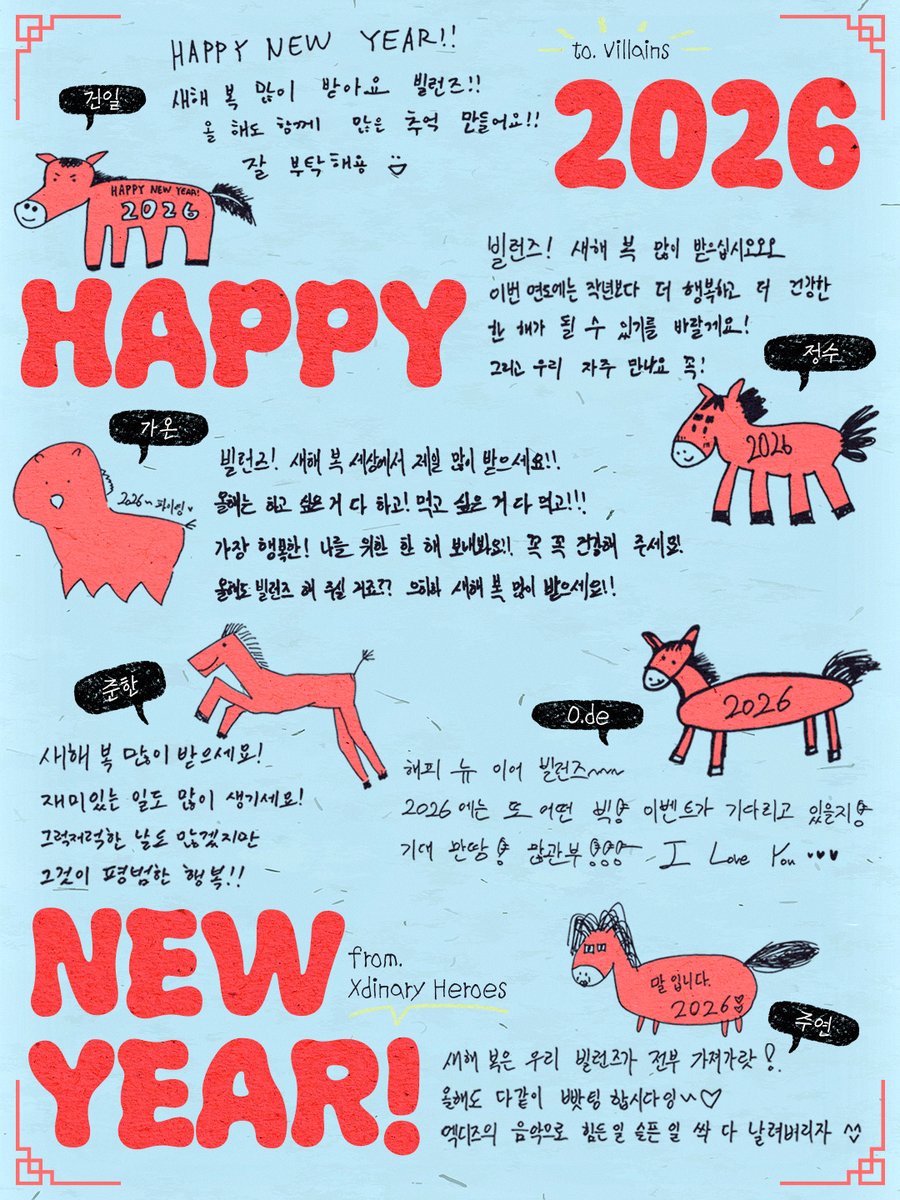 to. Villains
2026
건일
HAPPY NEW YEAR!!
새해 복 많이 받아요 빌런즈!!
올 해도 함께 많은 추억 만들어요!!
잘 부탁해용
HAPPY NEW YEAR!
2026
HAPPY
빌런즈! 새해 복 많이 받으십시오오오
이번 연도에는 작년보다 더 행복하고 더 건강한
한 해가 될 수 있기를 바랄게요!
그리고 우리 자주 만나요 꼭!
정수
2026
가온
2026~ 파이팅
빌런즈! 새해 복 세상에서 제일 많이 받으세요!!
올해는 하고 싶은 거 다 하고! 먹고 싶은 거 다 먹고!!!
가장 행복한! 나를 위한 한 해 보내봐요!! 꼭 꼭 건강해 주세요!
올해도 빌런즈 해 주실 거죠?? 으히하 새해 복 많이 받으세요!!
준한
새해 복 많이 받으세요!
재미있는 일도 많이 생기세요!
그럭저럭한 날도 많겠지만
그것이 평범한 행복!!
O.de
2026
해피 뉴 이어 빌런즈~~~
2026에는 또 어떤 빅 이벤트가 기다리고 있을지
기대 만땅 많관부 I Love You ♥♥♥
NEW
YEAR!
from.
Xdinary Heroes
말입니다.
2026
주연
새해 복은 우리 빌런즈가 전부 가져가랏!
올해도 다같이 빳팅 합시다잉~♡
엑디즈의 음악으로 힘든 일 슬픈 일 싹 다 날려버리자 ^^